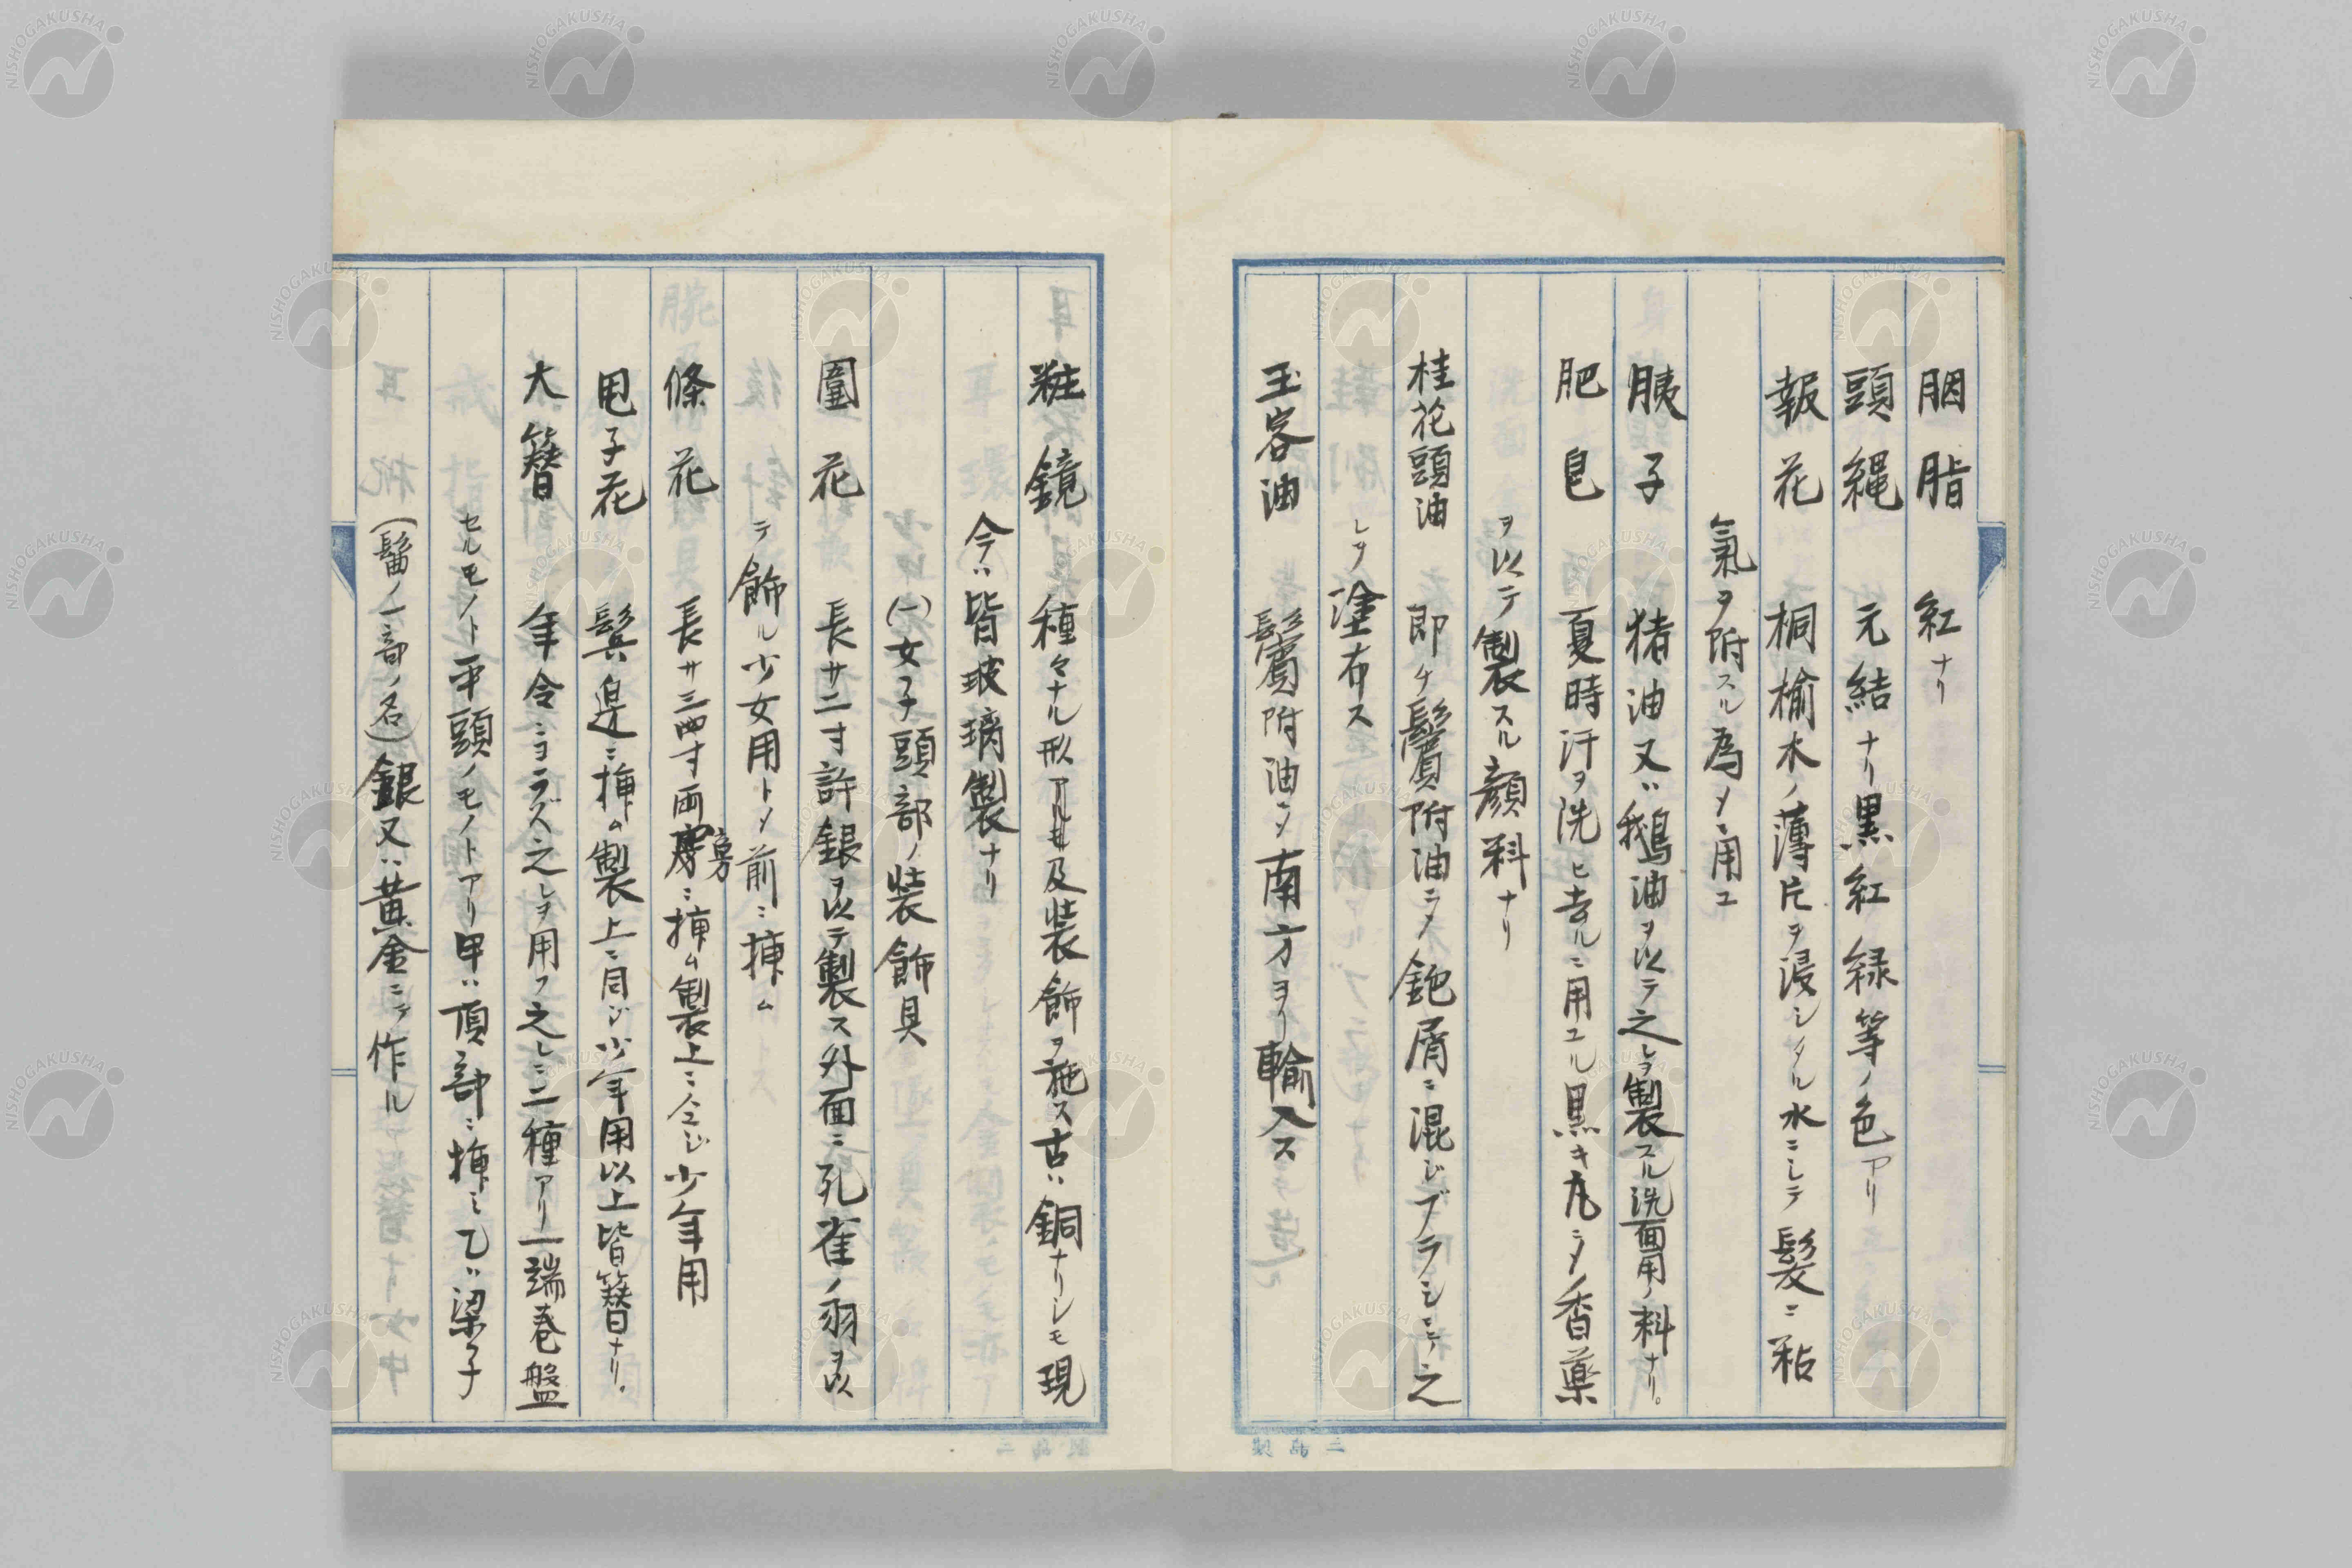 胭脂　紅ナリ
頭縄　元結ナリ黒紅緑等ノ色アリ
報花　桐楡木ノ薄片ヲ浸シタル水ニシテ髪ニ粘
氣ヲ附スル為メニ用ユ
胰子　猪油又ハ鵝油ヲ以テ之レヲ製スル洗面用ノ料ナリ。
肥皂　夏時汗ヲ洗ヒ去ルニ用ユル黒キ丸ニメ香薬
ヲ以テ製スル顔料ナリ
桂花頭油　即チ鬢附油ニメ鉋屑ニ混ジブラシニテ之
レヲ塗布ス
玉容油　鬢附油ニメ南方ヨリ輸入ス
粧鏡　種々ナル形アル及装飾ヲ施ス古ハ銅ナリシモ現
今ハ皆玻璃製ナリ
(一)女子頭部ノ装飾具
圍花　長サ二寸許銀ヲ以テ製ス外面ニ孔雀ノ羽ヲ以
テ飾ル少女用トメ前ニ挿ム
條花　長サ三四寸両旁ニ挿ム製上ニ仝ジ少年用
甩子花　鬂邉ニ挿ム製上ニ同ジ少年用以上皆簪ナリ.
大簪　年令ニヨラズ之レヲ用フ之レニ二種アリ一端巻盤
セルモノト平頭ノモノトアリ甲ハ頂部ニ挿ミ乙ハ梁子
(髷ノ一部ノ名)銀又ハ黄金ニテ作ル
製 品 三
NISHOGAKUSHA